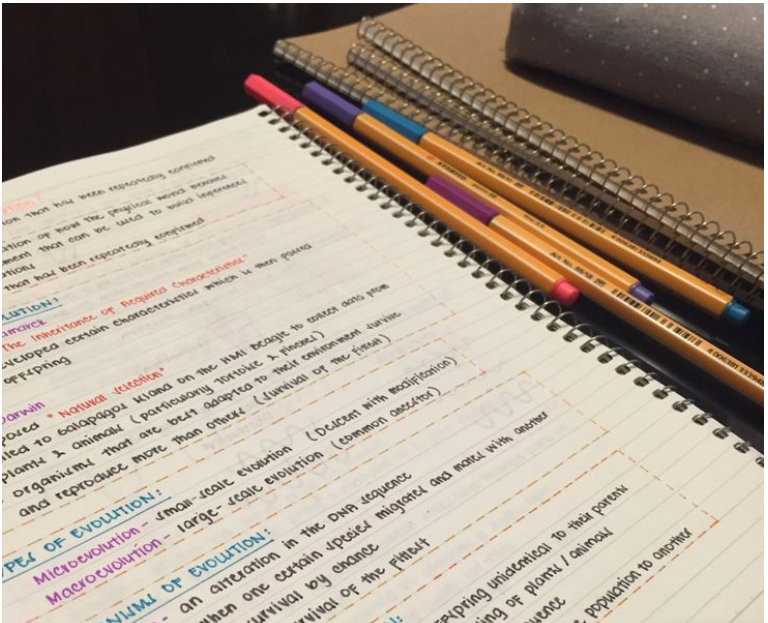 that has been repeatedly confirmed
of how the physical world behaves
that can be used to build inferences
that has been repeatedly confirmed
OLUTION:
amarck
"The Inheritance of Acquired Characteristics"
veloped certain characteristics which is then passed
offspring
Darwin
posed "Natural Selection"
iled to Galapagos Island on the HMS Beagle to collect data from
plants & animals (particularly tortoise & finches)
organisms that are best adapted to their environment survive
and reproduce more than others (survival of the fittest)
YPES OF EVOLUTION:
Microevolution - small-scale evolution (Descent with modification)
Macroevolution - large-scale evolution (common ancestor)
NISMS OF EVOLUTION:
- an alteration in the DNA sequence
when one certain species migrates and mates with another
survival by chance
rvival of the fittest
offspring unidentical to their parents
ing of plants / animals
quence
population to another